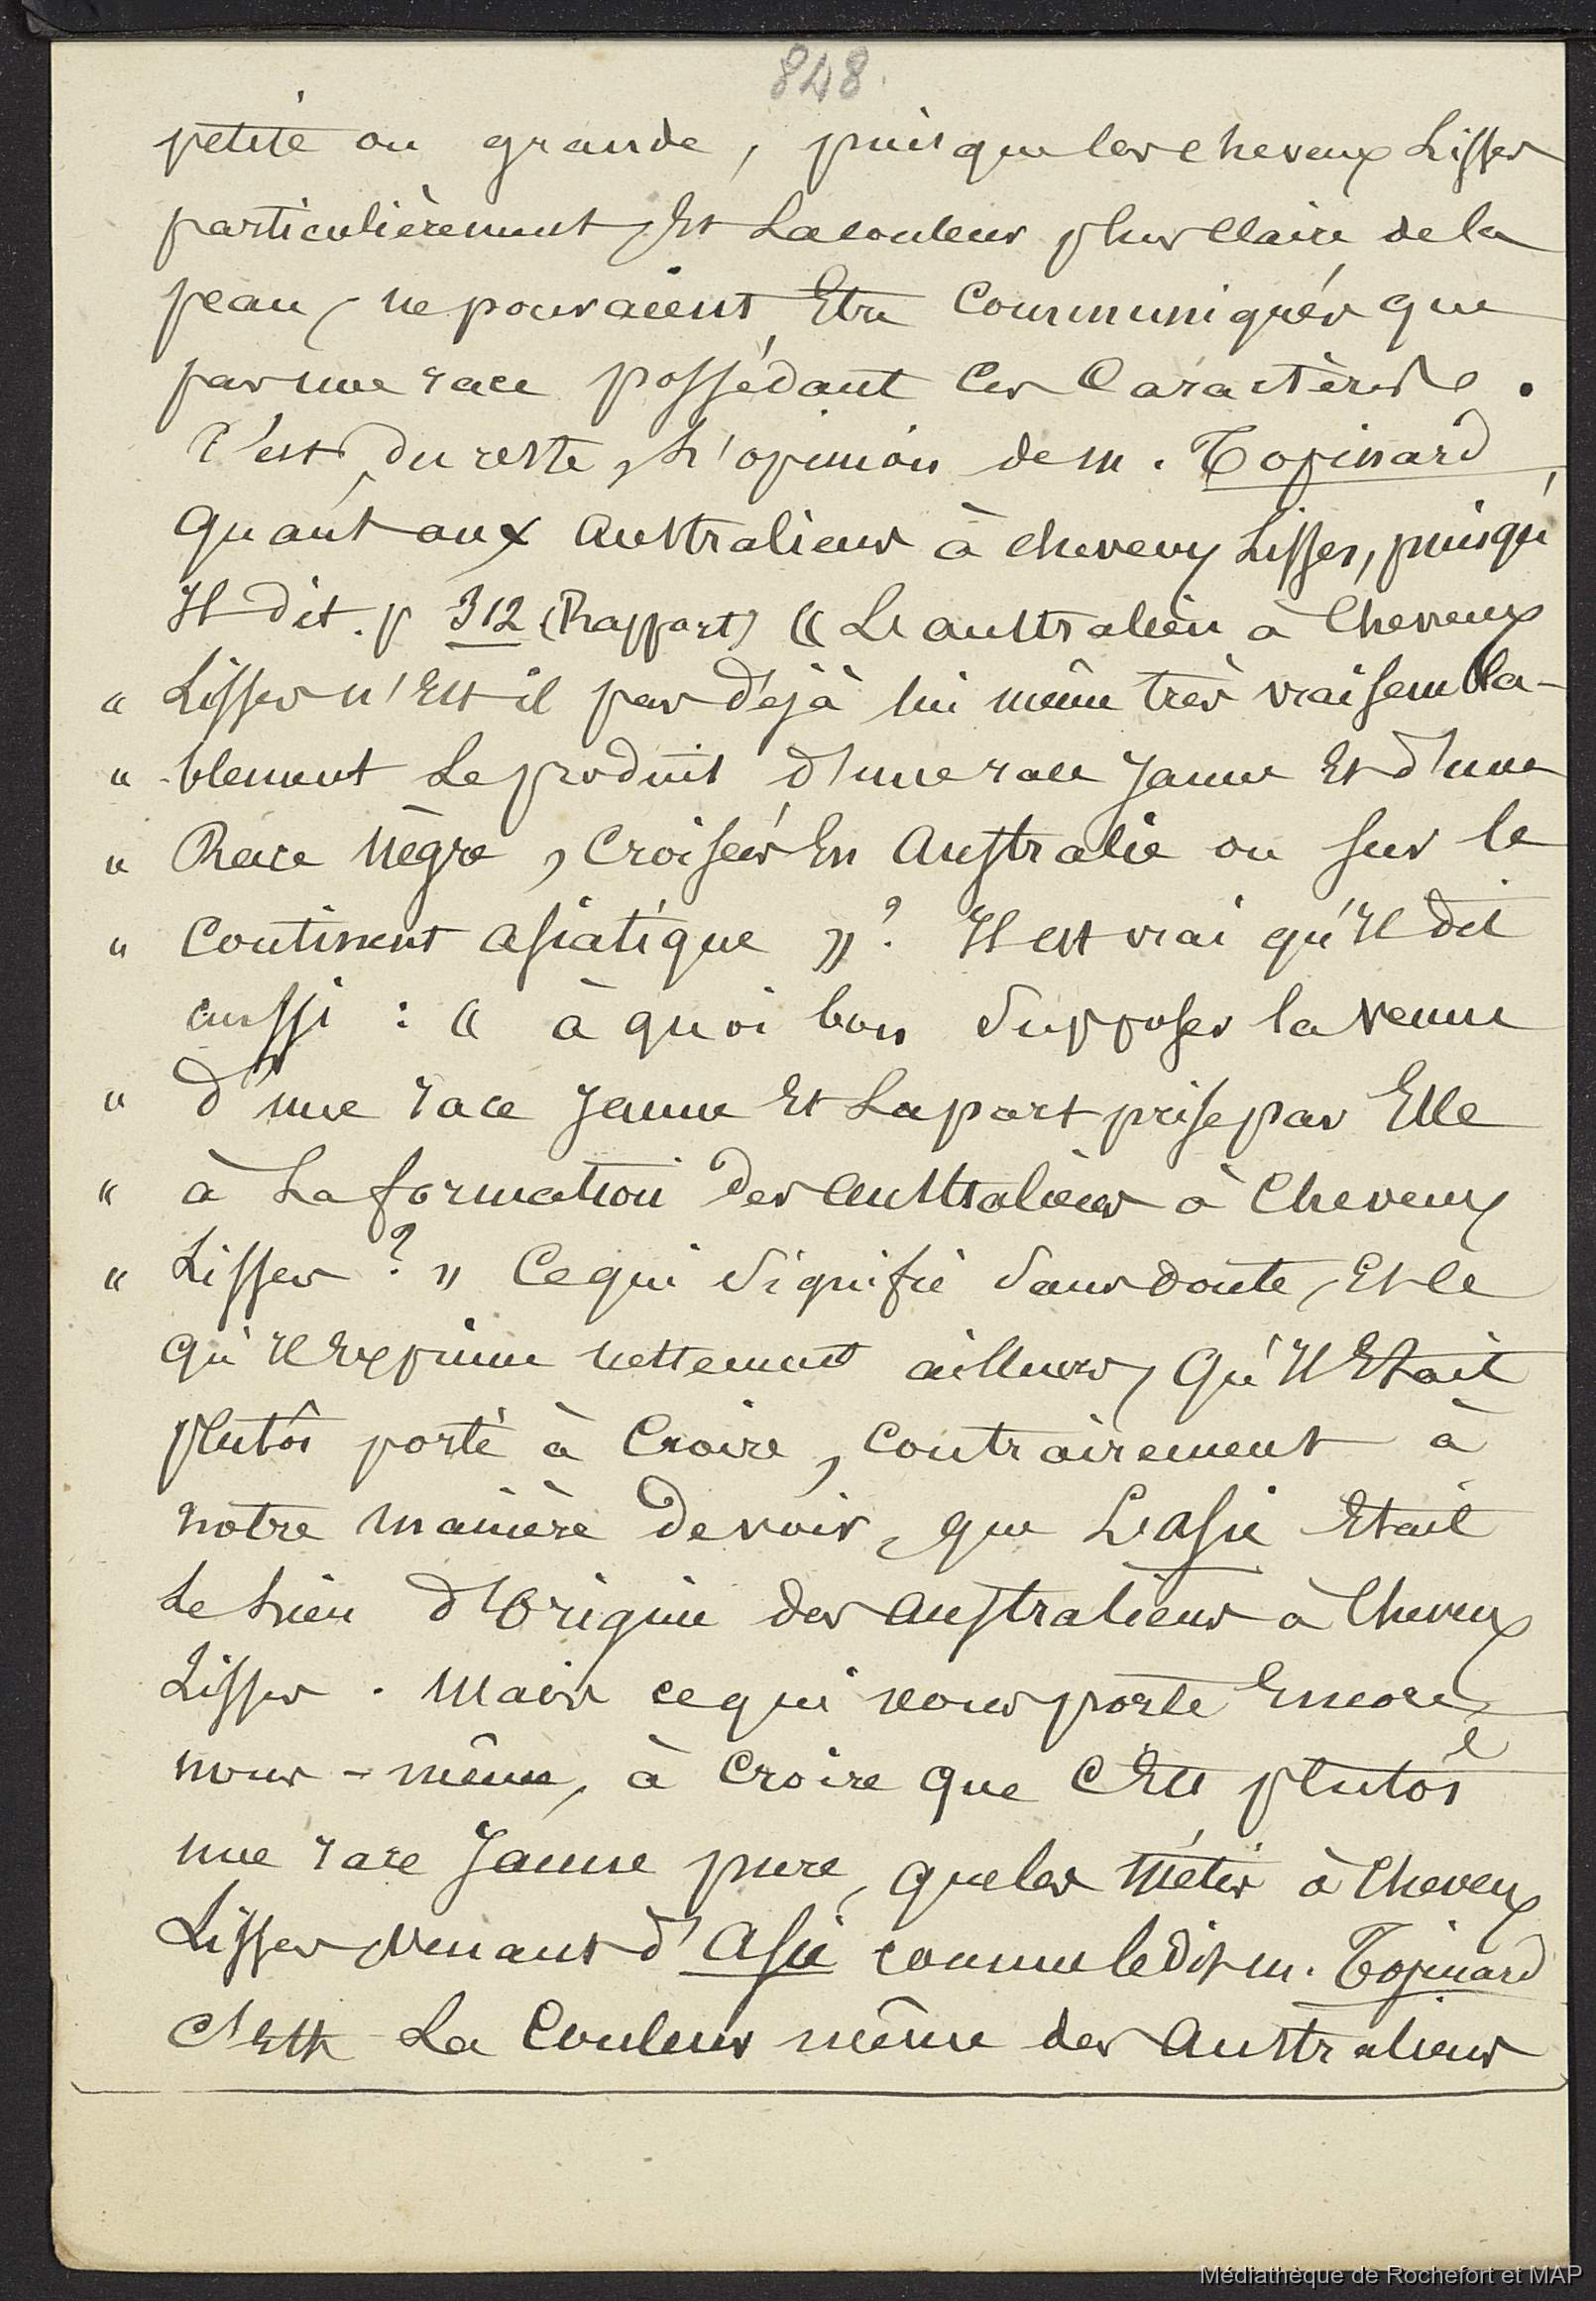 848.
petite ou grande, puisque les cheveux Lisses
particulièrement, Et La couleur plus Claire de la
peau, ne pouvaient, Etre Communiqués que
par une race possédant Ces Caractères.
C'est, du reste, L'opinion de m. Topinard,
Quant aux Australiens à cheveux Lisses, puisqu'
Il dit. p 312 (Rapport) « L'australien à Cheveux
" Lisses n'Est il pas déjà lui même très vraisembla-
" -blement Le produit d'une race Jaune Et d'une
" Race Nègre, Croisées En Australie ou sur le
" Continent asiatique » ? Il est vrai qu'Il dit
aussi : « à quoi bon Supposer la venue
" d'une race Jaune Et La part prise par Elle
" à La formation des Australiens à Cheveux
" Lisses ? » Ce qui Signifie Sans doute, Et ce
qu'Il Exprime nettement ailleurs, Qu'Il Etait
plutôt porté à Croire, Contrairement à
notre manière de voir, que L'Asie Etait
Le Lieu d'Origine des Australiens à Cheveux
Lisses. Mais ce qui nous porte Encore,
nous-même, à Croire que C'Est plutôt
une race Jaune pure, que les Métis à Cheveux
Lisses Venant d'Asie comme le dit m. Topinard
C'Est La Couleur même des Australiens
Médiathèque de Rochefort et MAP